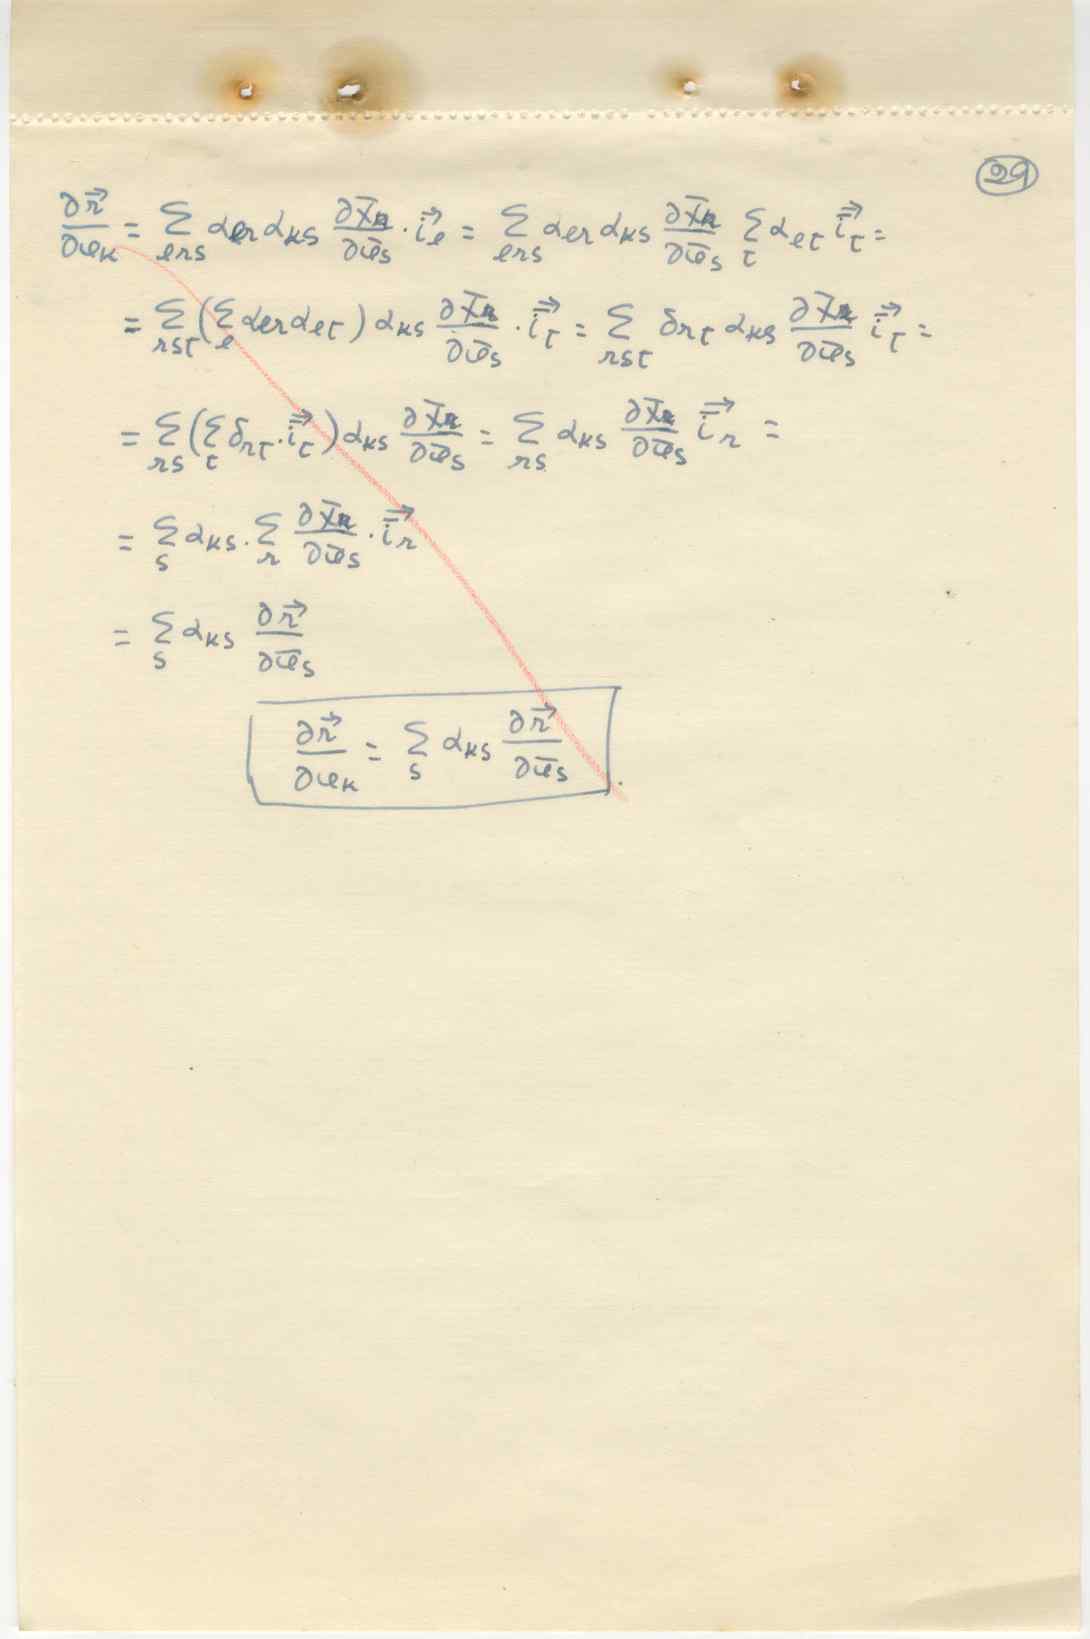 29
∂r⃗/∂u_k = Σ_{lrs} α_{lr} α_{ks} ∂x̄_r/∂ū_s · i⃗_l = Σ_{lrs} α_{lr} α_{ks} ∂x̄_r/∂ū_s Σ_t α_{lt} i̅⃗_t =
= Σ_{rst} (Σ_l α_{lr} α_{lt}) α_{ks} ∂x̄_r/∂ū_s · i̅⃗_t = Σ_{rst} δ_{rt} α_{ks} ∂x̄_r/∂ū_s i̅⃗_t =
= Σ_{rs} (Σ_t δ_{rt} · i̅⃗_t) α_{ks} ∂x̄_r/∂ū_s = Σ_{rs} α_{ks} ∂x̄_r/∂ū_s i̅⃗_r =
= Σ_s α_{ks} · Σ_r ∂x̄_r/∂ū_s · i̅⃗_r
= Σ_s α_{ks} ∂r⃗/∂ū_s
∂r⃗/∂u_k = Σ_s α_{ks} ∂r⃗/∂ū_s .